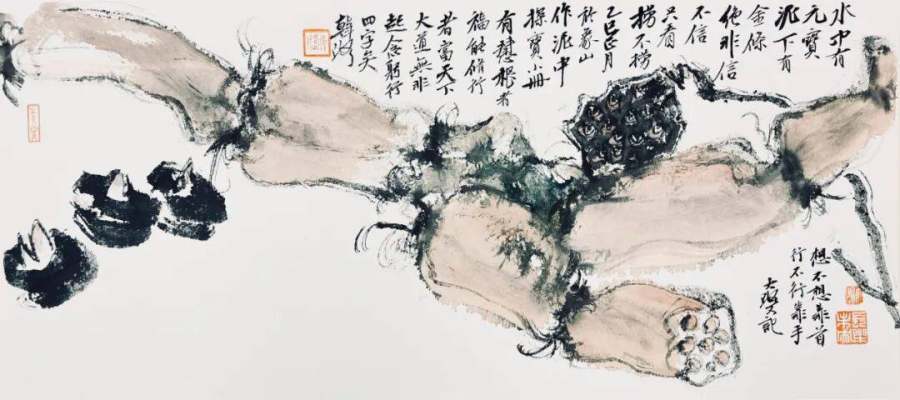 水中有
元寶
泥下有
金條
他非信
不信
只看
撈不撈
乙巳正月
於象山
作泥中
探寶小冊
有慧根者
福能修行
者富天下
大道無非
起念躬行
四字矣
韓
想不想靠首
行不行靠手
大又記